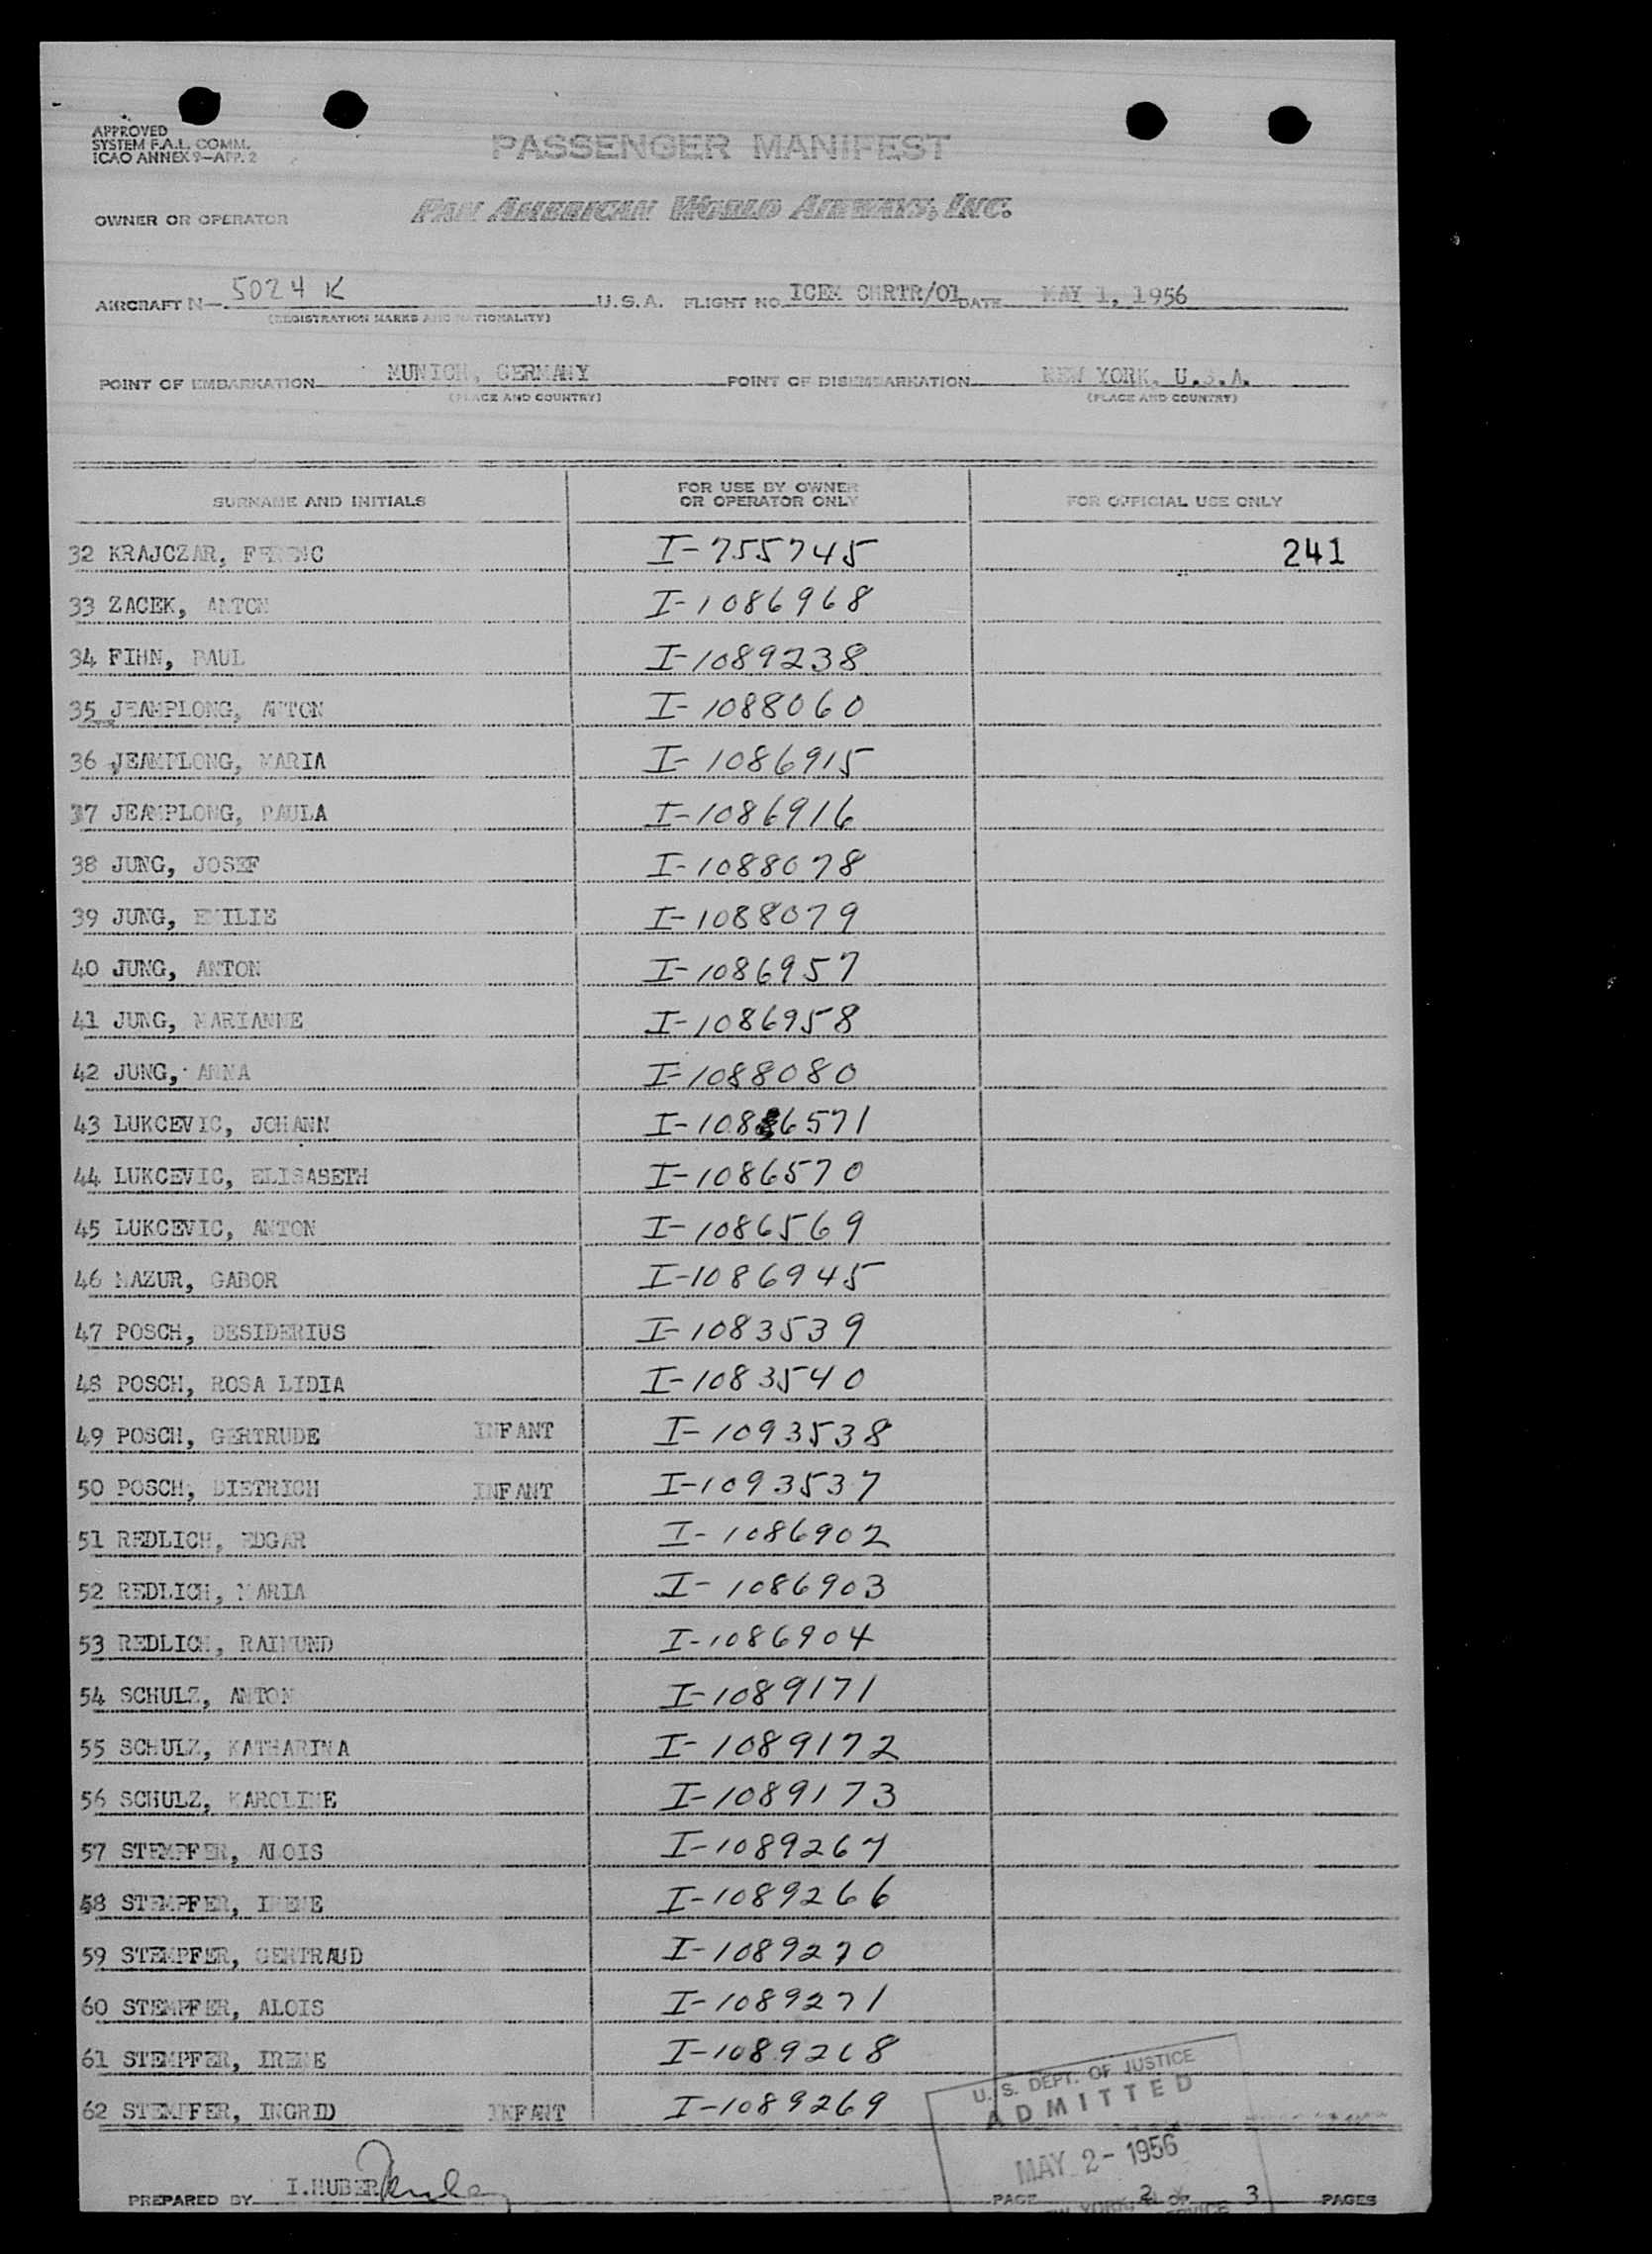 APPROVED
SYSTEM F.A.L. COMM.
ICAO ANNEX 9-APP. 2
PASSENGER MANIFEST
OWNER OR OPERATOR PAN AMERICAN WORLD AIRWAYS, INC.
AIRCRAFT N- 5024 K U.S.A. FLIGHT NO. ICEM CHRTR/01 DATE MAY 1, 1956
(REGISTRATION MARKS AND NATIONALITY)
POINT OF EMBARKATION MUNICH, GERMANY POINT OF DISEMBARKATION NEW YORK, U.S.A.
(PLACE AND COUNTRY) (PLACE AND COUNTRY)
SURNAME AND INITIALS FOR USE BY OWNER OR OPERATOR ONLY FOR OFFICIAL USE ONLY
32 KRAJCZAR, FERENC I-755745 241
33 ZACEK, ANTON I-1086968
34 FIHN, PAUL I-1089238
35 JEAMPLONG, ANTON I-1088060
36 JEAMPLONG, MARIA I-1086915
37 JEAMPLONG, PAULA I-1086916
38 JUNG, JOSEF I-1088078
39 JUNG, EMILIE I-1088079
40 JUNG, ANTON I-1086957
41 JUNG, MARIANNE I-1086958
42 JUNG, ANNA I-1088080
43 LUKCEVIC, JOHANN I-1086571
44 LUKCEVIC, ELISABETH I-1086570
45 LUKCEVIC, ANTON I-1086569
46 MAZUR, GABOR I-1086945
47 POSCH, DESIDERIUS I-1083539
48 POSCH, ROSA LIDIA I-1083540
49 POSCH, GERTRUDE INFANT I-1093538
50 POSCH, DIETRICH INFANT I-1093537
51 REDLICH, EDGAR I-1086902
52 REDLICH, MARIA I-1086903
53 REDLICH, RAIMUND I-1086904
54 SCHULZ, ANTON I-1089171
55 SCHULZ, KATHARINA I-1089172
56 SCHULZ, KAROLINE I-1089173
57 STEMPFER, ALOIS I-1089267
58 STEMPFER, IRENE I-1089266
59 STEMPFER, GERTRAUD I-1089270
60 STEMPFER, ALOIS I-1089271
61 STEMPFER, IRENE I-1089268
62 STEMPFER, INGRID INFANT I-1089269
U.S. DEPT. OF JUSTICE
ADMITTED
MAY 2-1956
PREPARED BY I.HUBER Huber PAGE 2 OF 3 PAGES
NEW YORK, N.Y.
SERVICE